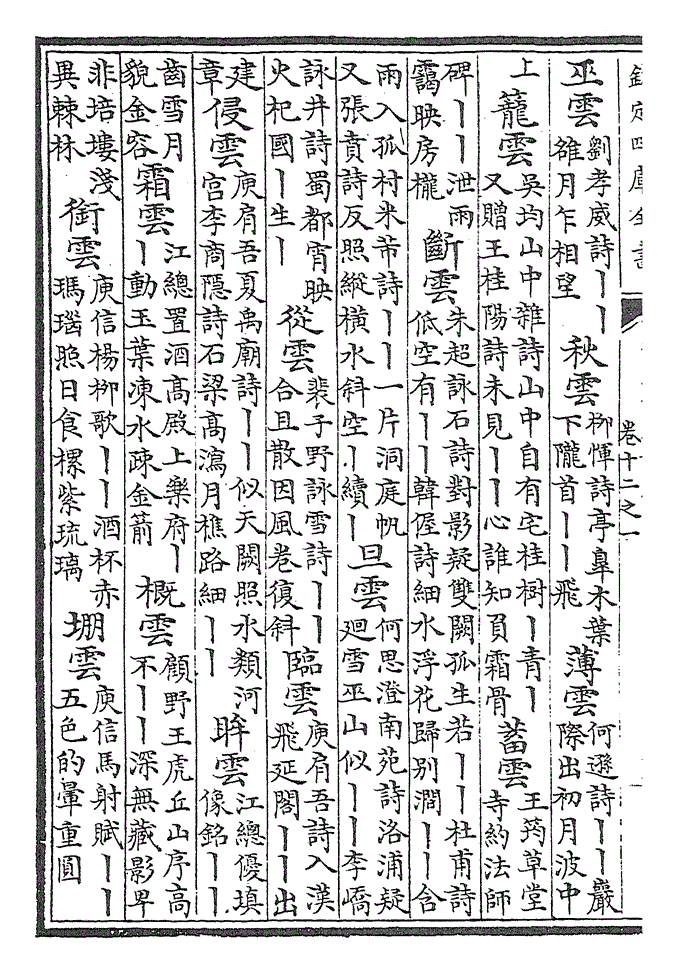 欽定四庫全書
卷十二之一
巫雲 劉孝威詩丨丨雒月乍相望 秋雲 柳惲詩亭臯木葉下隴首丨丨飛 薄雲 何遜詩丨丨巖際出初月波中
上 蘢雲 吳均山中雜詩山中自有宅桂樹丨青丨又贈王桂陽詩未見丨丨心誰知負霜骨 蓄雲 王筠草堂寺約法師
碑丨丨泄雨靄映房櫳 斷雲 朱超詠石詩對影疑雙闕孤生若丨丨杜甫詩低空有丨丨韓偓詩細水浮花歸别澗丨丨含
雨入孤村米芾詩丨丨一片洞庭帆又張賁詩反照縱橫水斜空丨續丨 旦雲 何思澄南苑詩洛浦疑迴雪巫山似丨丨李嶠
詠井詩蜀都宵映火杞國丨生丨 從雲 裴子野詠雪詩丨丨合且散因風卷復斜 臨雲 庾肩吾詩入漢飛延閣丨丨出
建章 侵雲 庾肩吾夏禹廟詩丨丨似天闕照水類河宫李商隱詩石梁髙瀉月樵路細丨丨 眸雲 江總優填像銘丨丨
齒雪月貌金容 霜雲 江總置酒髙殿上樂府丨丨動玉葉凍水疎金箭 概雲 顧野王虎丘山序高不丨丨深無藏影早
非培塿淺異棘林 銜雲 庾信楊柳歌丨丨酒杯赤瑪瑙照日食螺紫琉璃 堋雲 庾信馬射賦丨丨五色的暈重圓